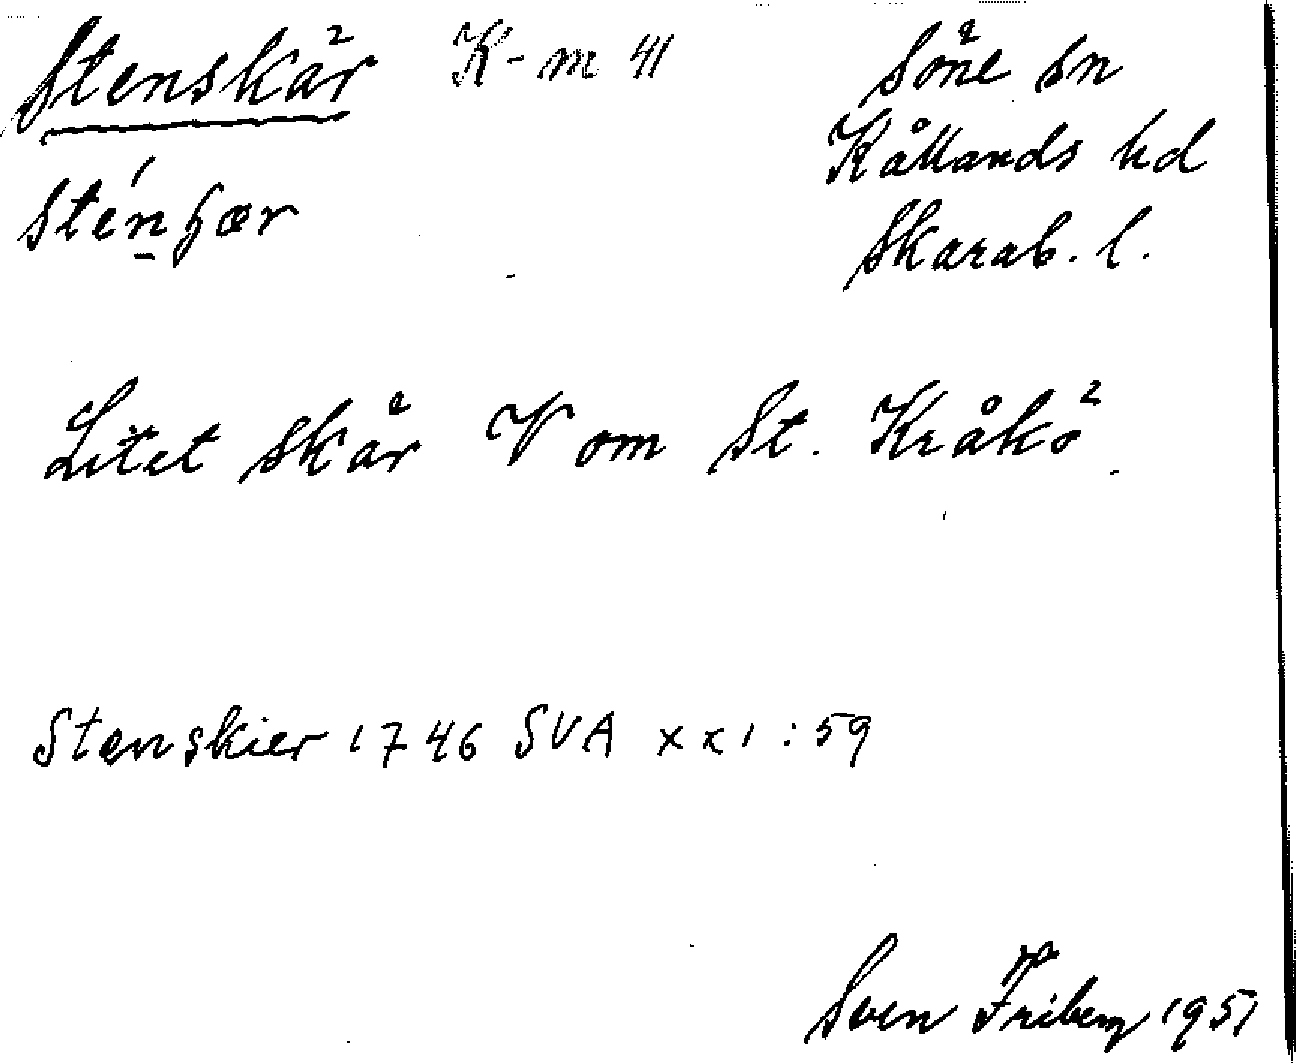 Stenskär K-m 41 Söne sn
Kållands hd
sténʃær Skarab. l.
Litet skär V om St. Kråkö
Stenskier 1746 SVA XXI:59
Sven Friberg 1951